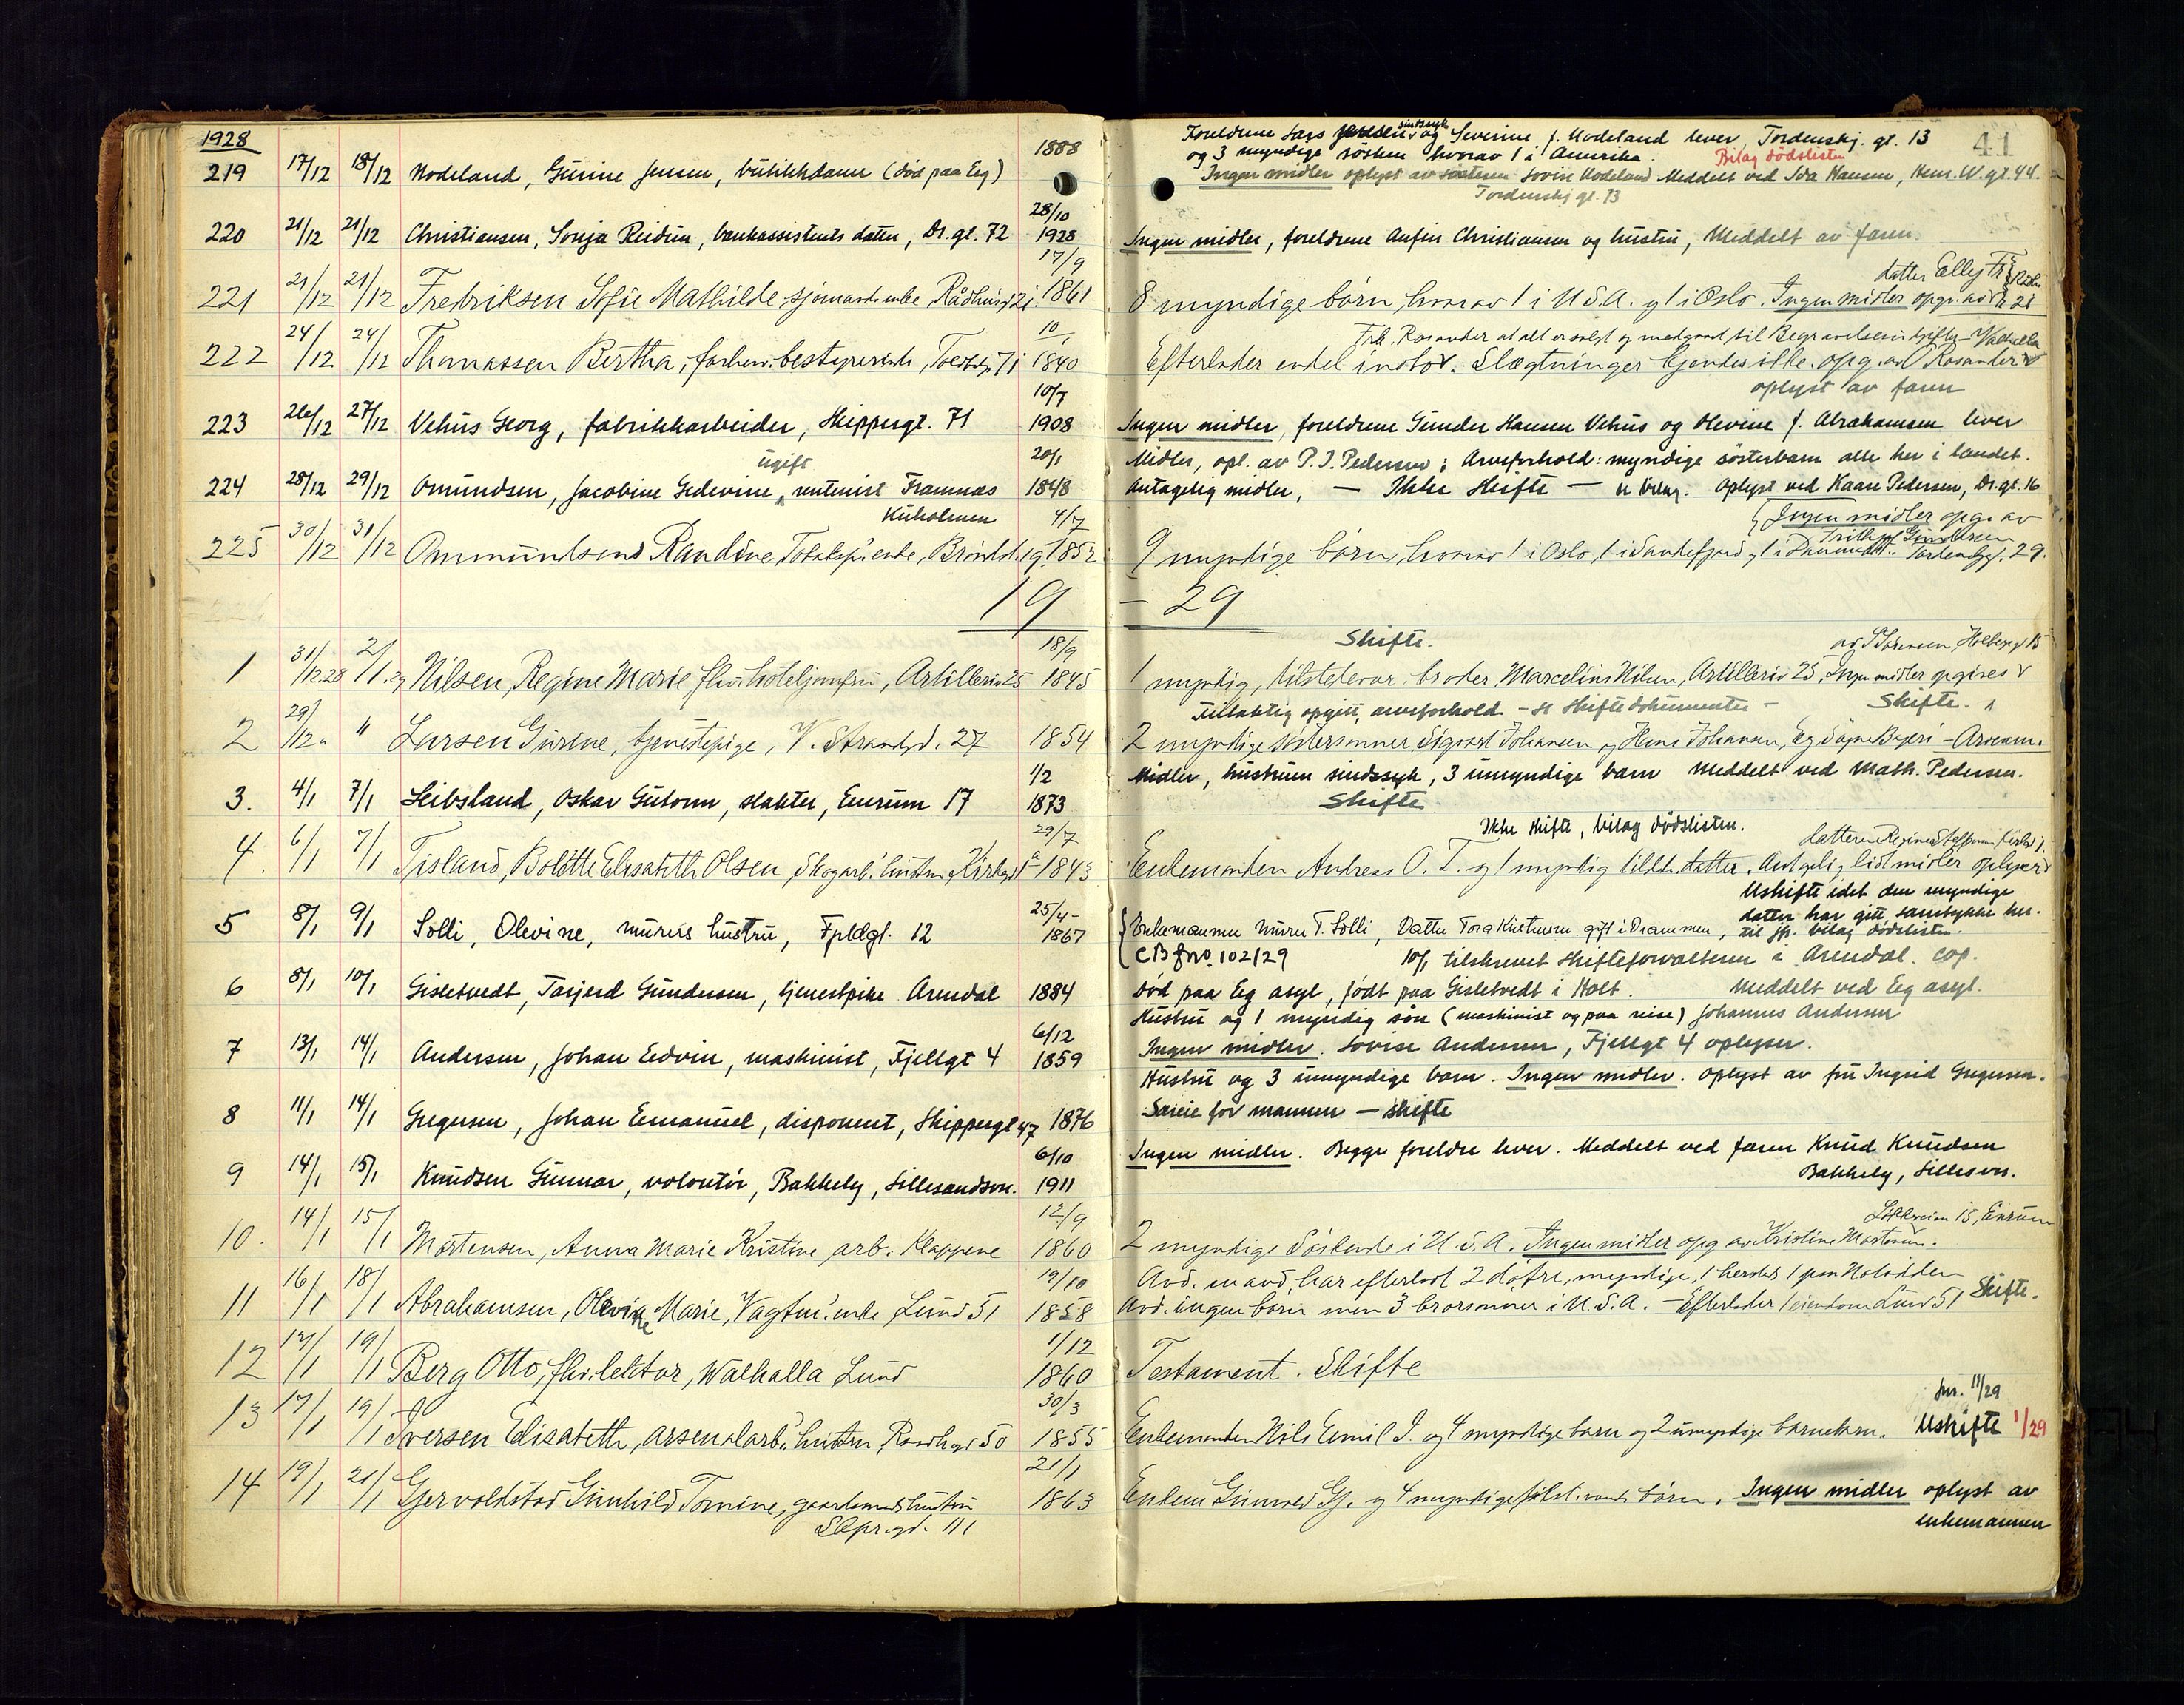 1928
41
1888
Foreldrene Lars sindssyk og Severine f. Nodeland lever, Tordenskj. gt. 13
og 3 myndige sösken hvorav 1 i Amerika. Bilag dödslisten
219 17/12 18/12 Nodeland, Gurine Jensen, butikkdame (död paa Eg)
Ingen midler oplyst av Lovise Nodeland Meddelt ved Ida Hansen, Hen. W. gt. 44.
Tordenskj gt. 13
28/10
220 21/12 21/12 Christiansen, Sonja Reidun, bankassistents datter, Dr. gt. 72 1928 Ingen midler, foreldrene Anfin Christiansen og hustru, Meddelt av faren.
17/9 datter Elly Fr
221 21/12 21/12 Fredriksen Sofie Mathilde sjömands enke Rådhusg 2i 1861 8 myndige börn, hvorav 1 i U.S.A. og 1 i Oslo. Ingen midler opgi. av R 21
10/ Frk. Rosander at alt er solgt og medgaat til Begravelsesutgifter - Valhalla
222 24/12 24/12 Thomassen Bertha, forhenv. bestyrerinde, 1840 Efterlader endel indbo. Slægtninger kjendes ikke. opg. av Rosander
oplyst av faren
10/7
223 26/12 27/12 Vehus Georg, fabrikkarbeider, Skippergt. 71 1908 Ingen midler, foreldrene Gunder Hansen Vehus og Olevine f. Abrahamsen lever
ugift 20/1 Midler, opl. av P. I. Pedersen; Arveforhold: myndige sösterbarn alle her i landet.
224 28/12 29/12 Omundsen, Jacobine Gedevine, rentenist Framnæs 1848 Antagelig midler, — Ikke Skifte — se bilag. Oplyst ved Kaare Pedersen, Dr. gt. 16
Kuholmen 4/7 Ingen midler opgi av
225 30/12 31/12 Ommundsen Randine, enke, 1852 9 myndige börn, hvorav 1 i Oslo, 1 i Sandefjord og 1 i Danmark. Tordenskj. 29.
19 - 29
18/9 Skifte. av S Sörensen, Holbergt 15
1 31/12.28 2/1.29 Nilsen, Regine Marie fhv. hoteljomfru, Artilleriv 25 1845 1 myndig, tilstedevær. broder, Marcelius Nilsen, Artilleriv 25, Ingen midler opgives
Fuldstendig opgitt, arveforhold - se Skiftedokumenter - Skifte.
2 29/12 " Larsen Gurine, tjenestepige, V. Strandgd. 27 1854 2 myndige söstersönner Sigvart Johansen og Hans Johansen, Eg
1/2 Midler, hustruen sindssyk, 3 umyndige barn Meddelt ved Math. Pedersen.
3. 4/1 7/1 Leibsland, Oskar Gutorm, slakter, Enrum 17 1873 Skifte
29/7 Ikke skifte, bilag dödslisten.
4. 6/1 7/1 Tisland, Bolette Elisabeth Olsen, Skogarb. hustru, 1843 Enkemanden Andreas O. T. og 1 myndig datter. Antagelig lidt midler oplyser
Uskifte idet den myndige
datter har gitt samtykke her-
25/4-
5 8/1 9/1 Solli, Olevine, murers hustru, 12 1867 Enkemannen murer T. Solli, Datter Tora Kristensen gift i Drammen, til jfr. bilag dödslisten.
CB fno. 102/29 10/1 tilskrevet skifteforvalteren i Arendal. cop.
6 8/1 10/1 Gisletvedt, Tarjerd Gundersen, tjenestpike Arendal 1884 död paa Eg asyl, födt paa Gisletvedt i Holt. Meddelt ved Eg asyl.
6/12 Hustru og 1 myndig sön (maskinist og paa reise) Johannes Andersen
7 13/1 14/1 Andersen, Johan Edvin, maskinist, Fjellgt 4 1859 Ingen midler. Lovise Andersen, Fjellgt 4 oplyser.
Hustru og 3 umyndige barn. Ingen midler. oplyst av fru Ingrid Gregersen.
8 11/1 14/1 Gregersen, Johan Emanuel, disponent, Skippergt 47 1876 Særeie for mannen — skifte
6/10 Ingen midler. Begge foreldre lever. Meddelt ved faren Knud Knudsen
9 14/1 15/1 Knudsen Gunnar, volontör, Bakkely, Lillesandsvn. 1911 Bakkely, Lillesvn.
12/9 15, Enrum
10. 14/1 15/1 Mortensen, Anna Marie Kristine, arb. Klappene 1860 2 myndige Söskende i U.S.A. Ingen midler opg av Kristine Mortensen.
19/10 Avd. mand har efterlatt 2 døtre, myndige, 1 herst. 1 paa Notodden
11 16/1 18/1 Abrahamsen, Olevine Marie, Vagtm. enke Lund 51 1858 Avd. ingen børn men 3 brorsønner i U.S.A. - Efterlader 1 eiendom Lund 51 Skifte.
1/12
12 17/1 19/1 Berg Otto, fhv. lektor, Walhalla Lund 1860 Testament. Skifte
30/3 11/29
13 17/1 19/1 Iversen Elisabeth, arsenalarb. hustru, 50 1855 Enkemanden Nils Emil I. og 4 myndige barn og 2 umyndige barnebarn. Uskifte 1/29
21/1
14 19/1 21/1 Gjervoldstad Gunhild Tomine, gaardmands hustru 1863 Enkem Gunvald Gj. og 4 myndige börn. Ingen midler oplyst av
111 enkemannen